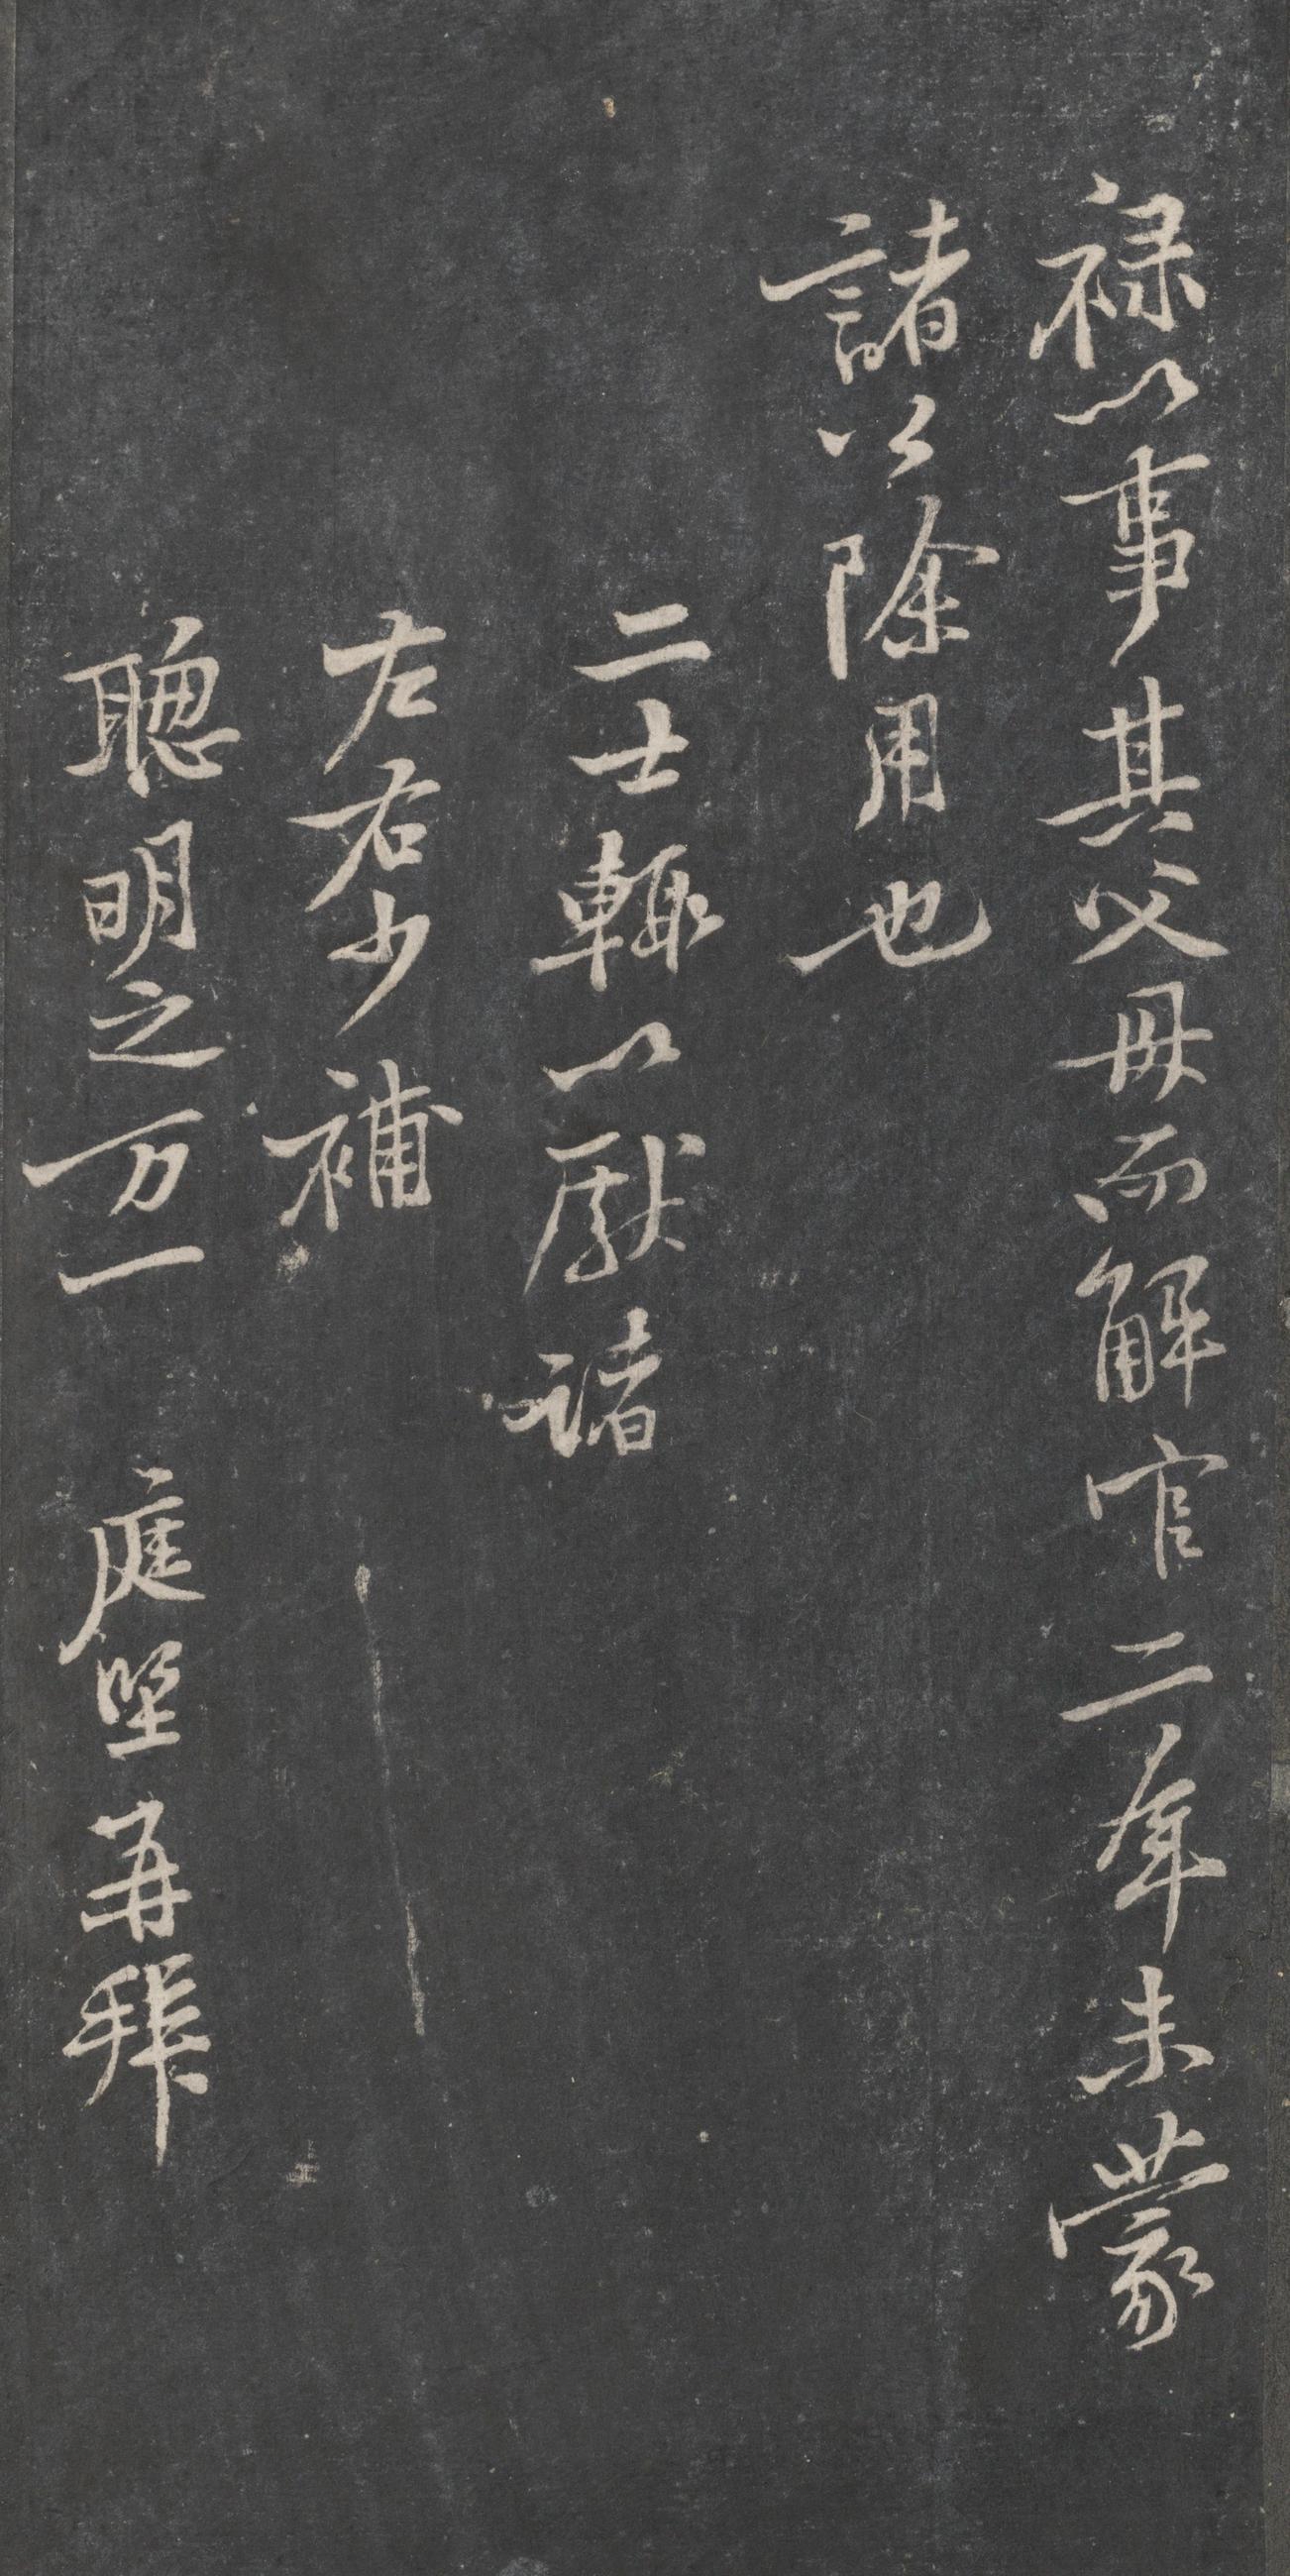 禄以事其父母而解官二年未蒙
諸公除用也
二士輙以獻諸
左右少補
聰明之万一 庭堅再拜